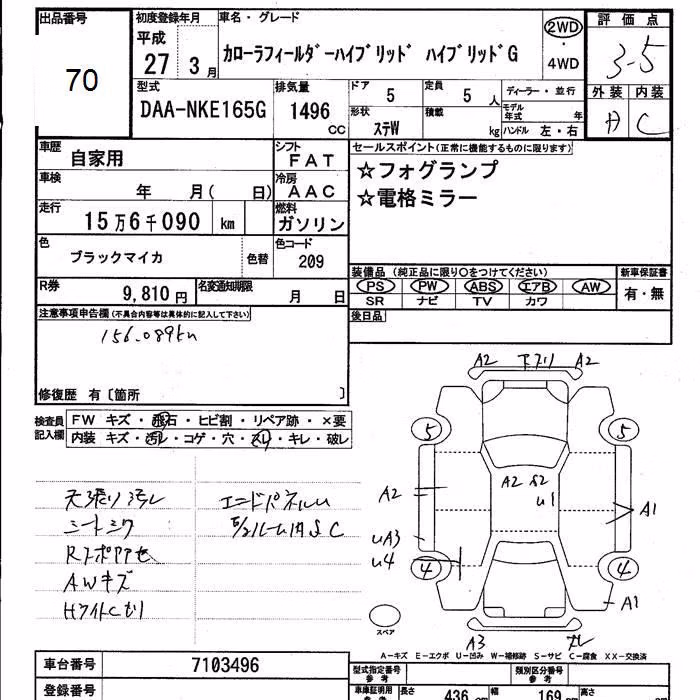 出品番号
70
初度登録年月
平成
27 3 月
車名・グレード
カローラフィールダーハイブリッド ハイブリッドG
2WD
・
4WD
評価点
3.5
外装 内装
A C
型式
DAA-NKE165G
排気量
1496
CC
ドア
5
定員
5 人
形状
ステW
積載
kg
ディーラー・並行
モデル年式 年
ハンドル 左・右
車歴
自家用
シフト
FAT
車検
年 月( 日)
冷房
AAC
走行
15万6千090 km
燃料
ガソリン
色
ブラックマイカ
色替
色コード
209
R券
9,810 円
名変通知期限
月 日
セールスポイント(正常に機能するものに限ります)
☆フォグランプ
☆電格ミラー
装備品 (純正品に限り○をつけてください)
PS PW ABS エアB AW
SR ナビ TV カワ
新車保証書
有・無
後日品
注意事項申告欄(不具合内容等は具体的に記入して下さい)
156.089km
修復歴 有〔箇所 〕
検査員
記入欄
FW キズ・飛石・ヒビ割・リペア跡・×要
内装 キズ・汚レ・コゲ・穴・スレ・キレ・破レ
天張り汚レ
シートシワ
AWキズ
エンドパネルU
A2 下スリ A2
5 5
A2 S2
U1
A2
A1
UA3
U4
4 4
A1
スペア
A3
A-キズ E-エクボ U-凹み W-補修跡 S-サビ C-腐食 XX-交換済
車台番号
7103496
登録番号
型式指定番号
参考
類別区分番号
参考
車庫証明用
参考
長さ
436 cm
幅
169 cm
高さ